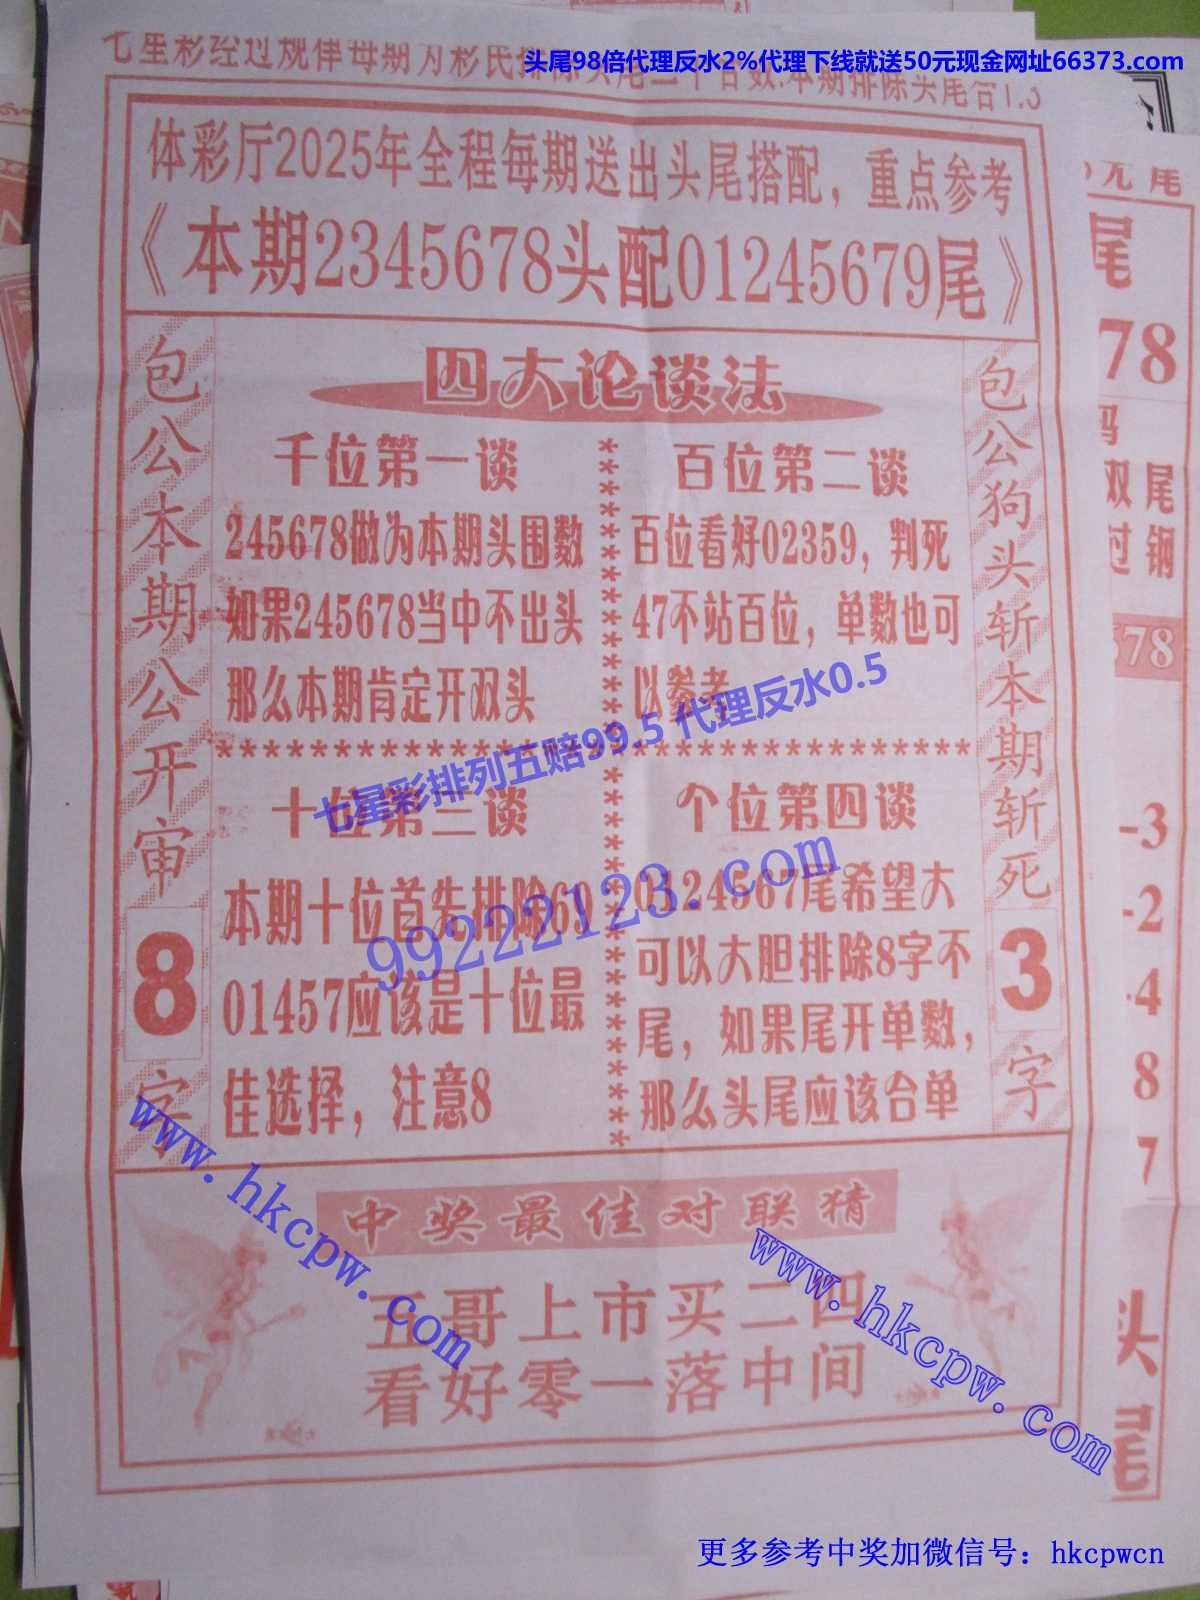 头尾98倍代理反水2%代理下线就送50元现金网址66373.com
七星彩经过规律每期为彩民排除头尾二个合数.本期排除头尾合1.6
体彩厅2025年全程每期送出头尾搭配，重点参考
《本期2345678头配01245679尾》
包公本期公开审
8
字
四大论谈法
千位第一谈
245678做为本期头围数
如果245678当中不出头
那么本期肯定开双头
百位第二谈
百位看好02359，判死
47不站百位，单数也可
以参考
七星彩排列五赔99.5 代理反水0.5
十位第三谈
本期十位首先排除69
01457应该是十位最
佳选择，注意8
99222123.com
个位第四谈
0124567尾希望大
可以大胆排除8字不
尾，如果尾开单数，
那么头尾应该合单
包公狗头斩本期斩死
3
字
www.hkcpw.com
中奖最佳对联猜
五哥上市买二四
看好零一落中间
www.hkcpw.com
尾
78
双尾
过钢
678
-3
-2
-4
8
7
头
尾
更多参考中奖加微信号：hkcpwcn